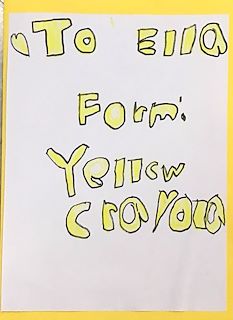 To Ella
Form:
Yellow
crayola